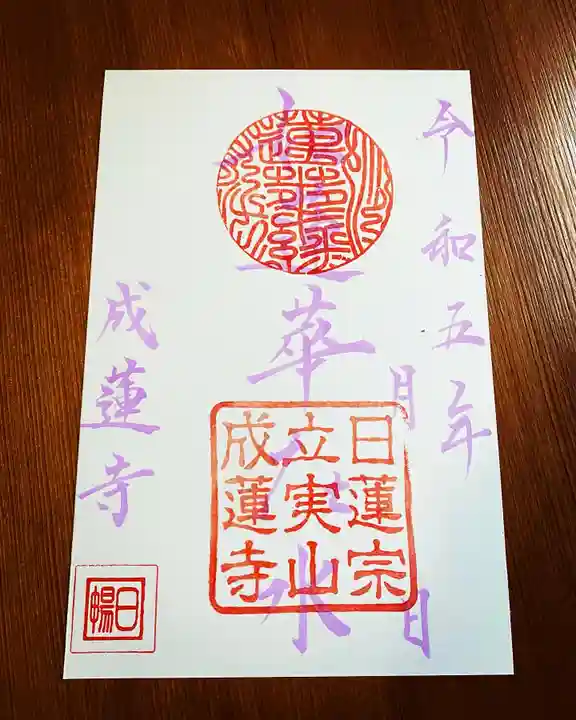 令和五年
月 日
華 水
日蓮宗
立実山
成蓮寺
成蓮寺
日暢